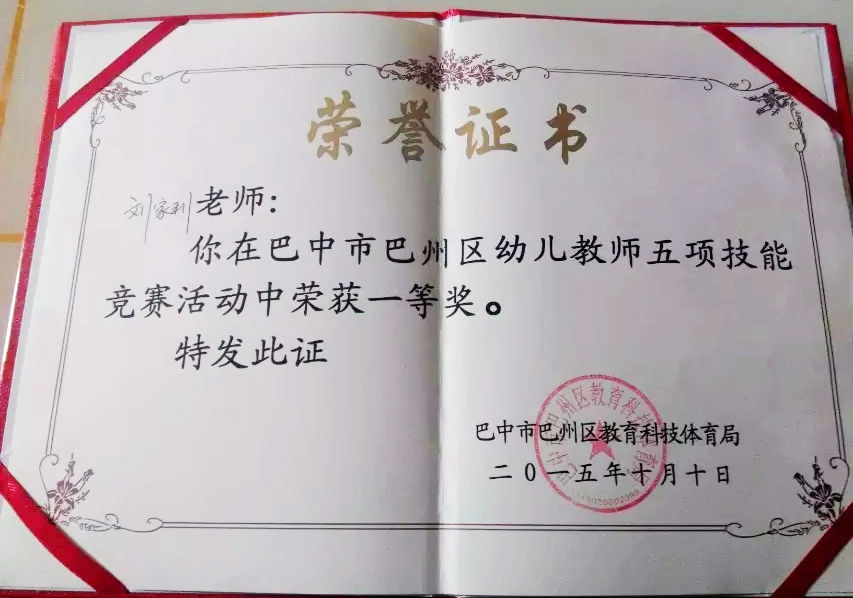 荣誉证书
刘家利老师：
你在巴中市巴州区幼儿教师五项技能
竞赛活动中荣获一等奖。
特发此证
巴中市巴州区教育科技体育局
二0一五年十月十日
巴中市巴州区教育科技体育局